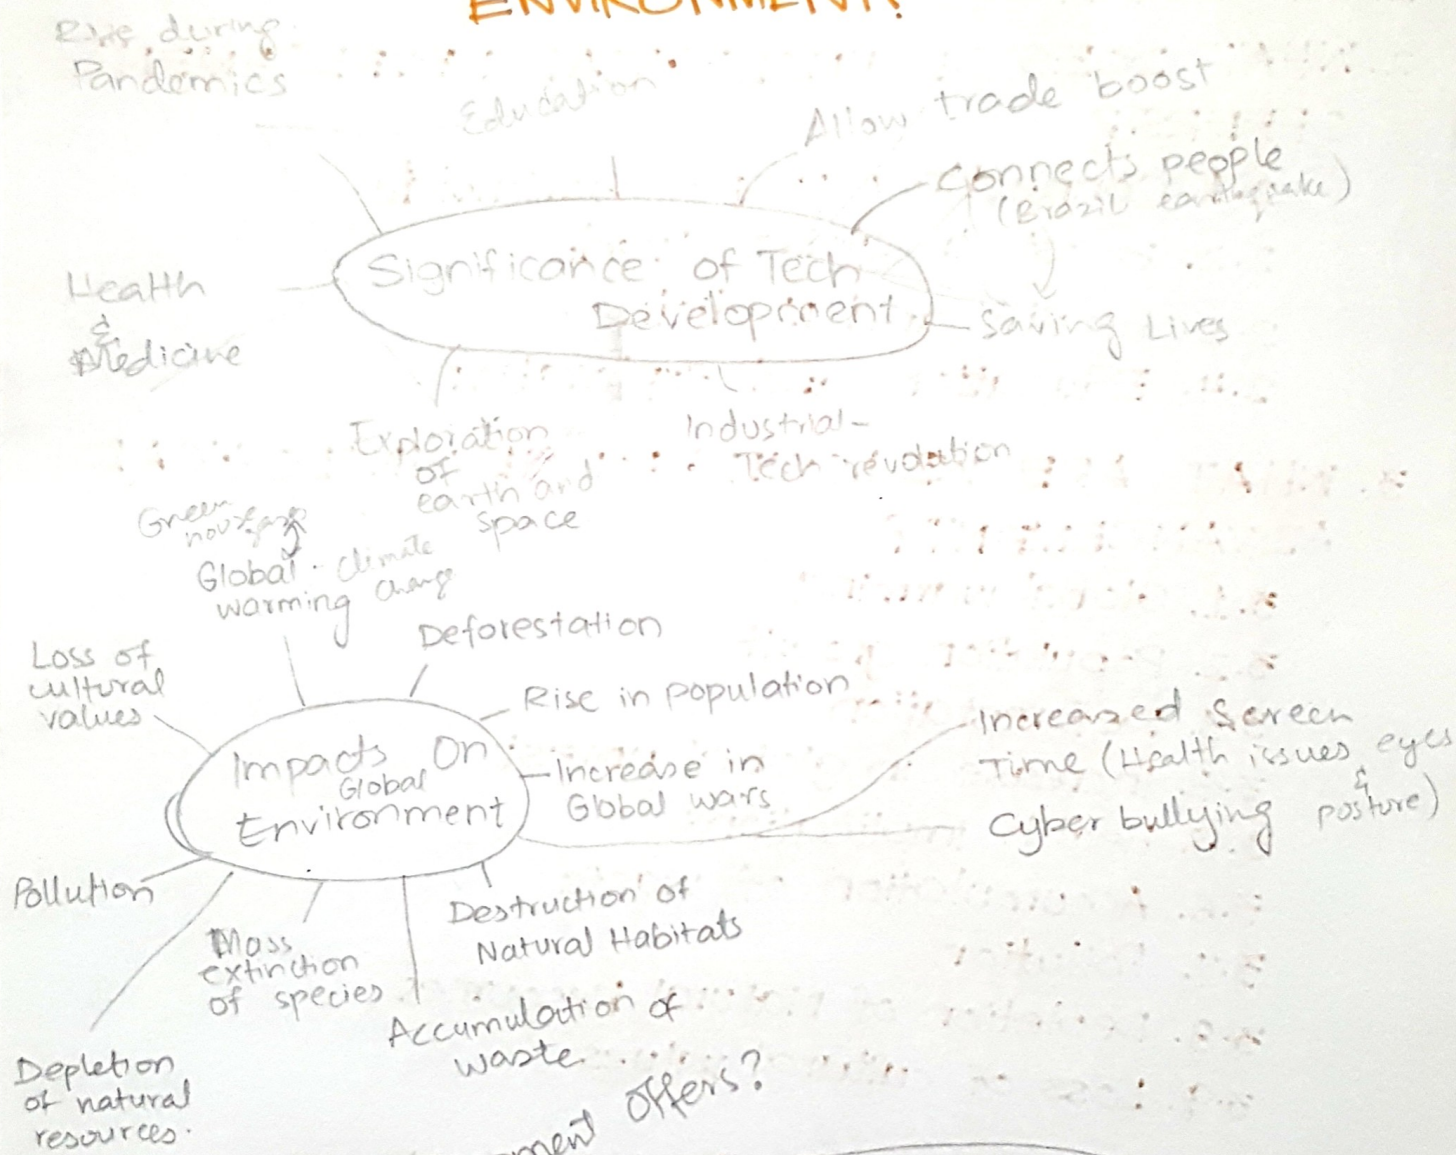 ENVIRONMENT?
Rise during
Pandemics
Education
Allow trade boost
Connects people
(Brazil earthquake)
Significance of Tech
Development
Health
&
Medicine
Saving Lives
Exploration
of
earth and
space
Industrial-
Tech revolution
Green
house gas
Global
warming
climate
change
Deforestation
Loss of
cultural
values
Rise in population
Impacts On
Global
Environment
Increase in
Global wars
Increased Screen
Time (Health issues, eyes
&
posture)
Cyber bullying
Pollution
Destruction of
Natural Habitats
Mass
extinction
of species
Accumulation of
waste.
Depletion
of natural
resources.
offers?